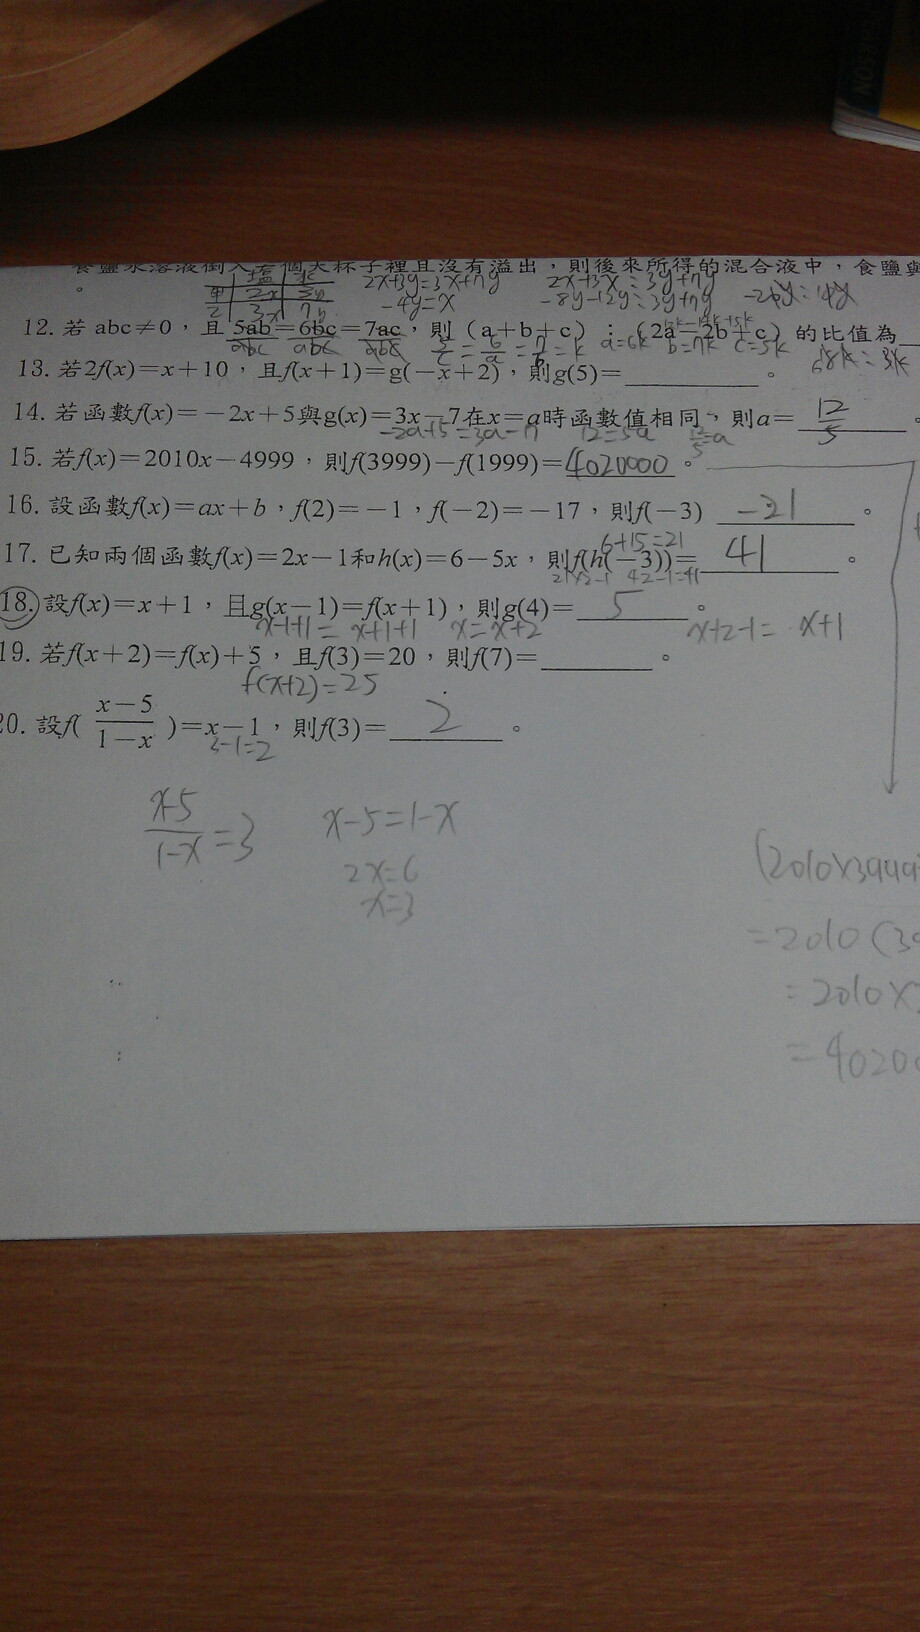 食鹽水溶液倒入若個大杯子裡且沒有溢出，則後來所得的混合液中，食鹽與
。
鹽 水
甲 2x 3y
乙 3x 7y
2x+3y=3x+7y
-4y=x
2x+3x:3y+7y
-8y-12y:3y+7y
12. 若 abc≠0，且 5ab=6bc=7ac，則（a+b+c）:（2a-2b+c）的比值為
abc abc abc
a=6k b=7k c=5k
18k:3k
13. 若2f(x)=x+10，且f(x+1)=g(-x+2)，則g(5)= 。
14. 若函數f(x)=-2x+5與g(x)=3x-7在x=a時函數值相同，則a= 12/5 。
-2a+5=3a-7 12=5a 12/5=a
15. 若f(x)=2010x-4999，則f(3999)-f(1999)=4020000。
16. 設函數f(x)=ax+b，f(2)=-1，f(-2)=-17，則f(-3) -21 。
6+15=21
17. 已知兩個函數f(x)=2x-1和h(x)=6-5x，則f(h(-3))= 41 。
21×2-1 42-1=41
18. 設f(x)=x+1，且g(x-1)=f(x+1)，則g(4)= 5 。
x-1+1= x+1+1 x=x+2 x+2-1= x+1
19. 若f(x+2)=f(x)+5，且f(3)=20，則f(7)= 。
f(x+2)=25
20. 設f( x-5/1-x )=x-1，則f(3)= 2 。
3-1=2
x-5/1-x=3 x-5=1-x
2x=6
x=3
=2010(39
=2010×
=4020